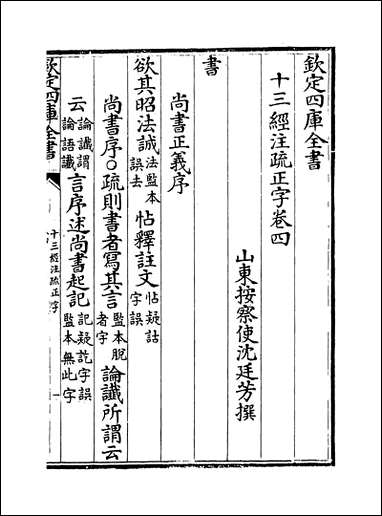 欽定四庫全書
十三經注疏正字卷四
山東按察使沈廷芳撰
書
尚書正義序
欲其昭法誡法監本誤去帖釋註文帖疑詁字誤
尚書序○疏則書者寫其言監本脫者字論讖所謂云
云論讖謂論語讖言序述尚書起記記疑訖字誤監本無此字
欽定四庫全書
十三經注疏正字
一